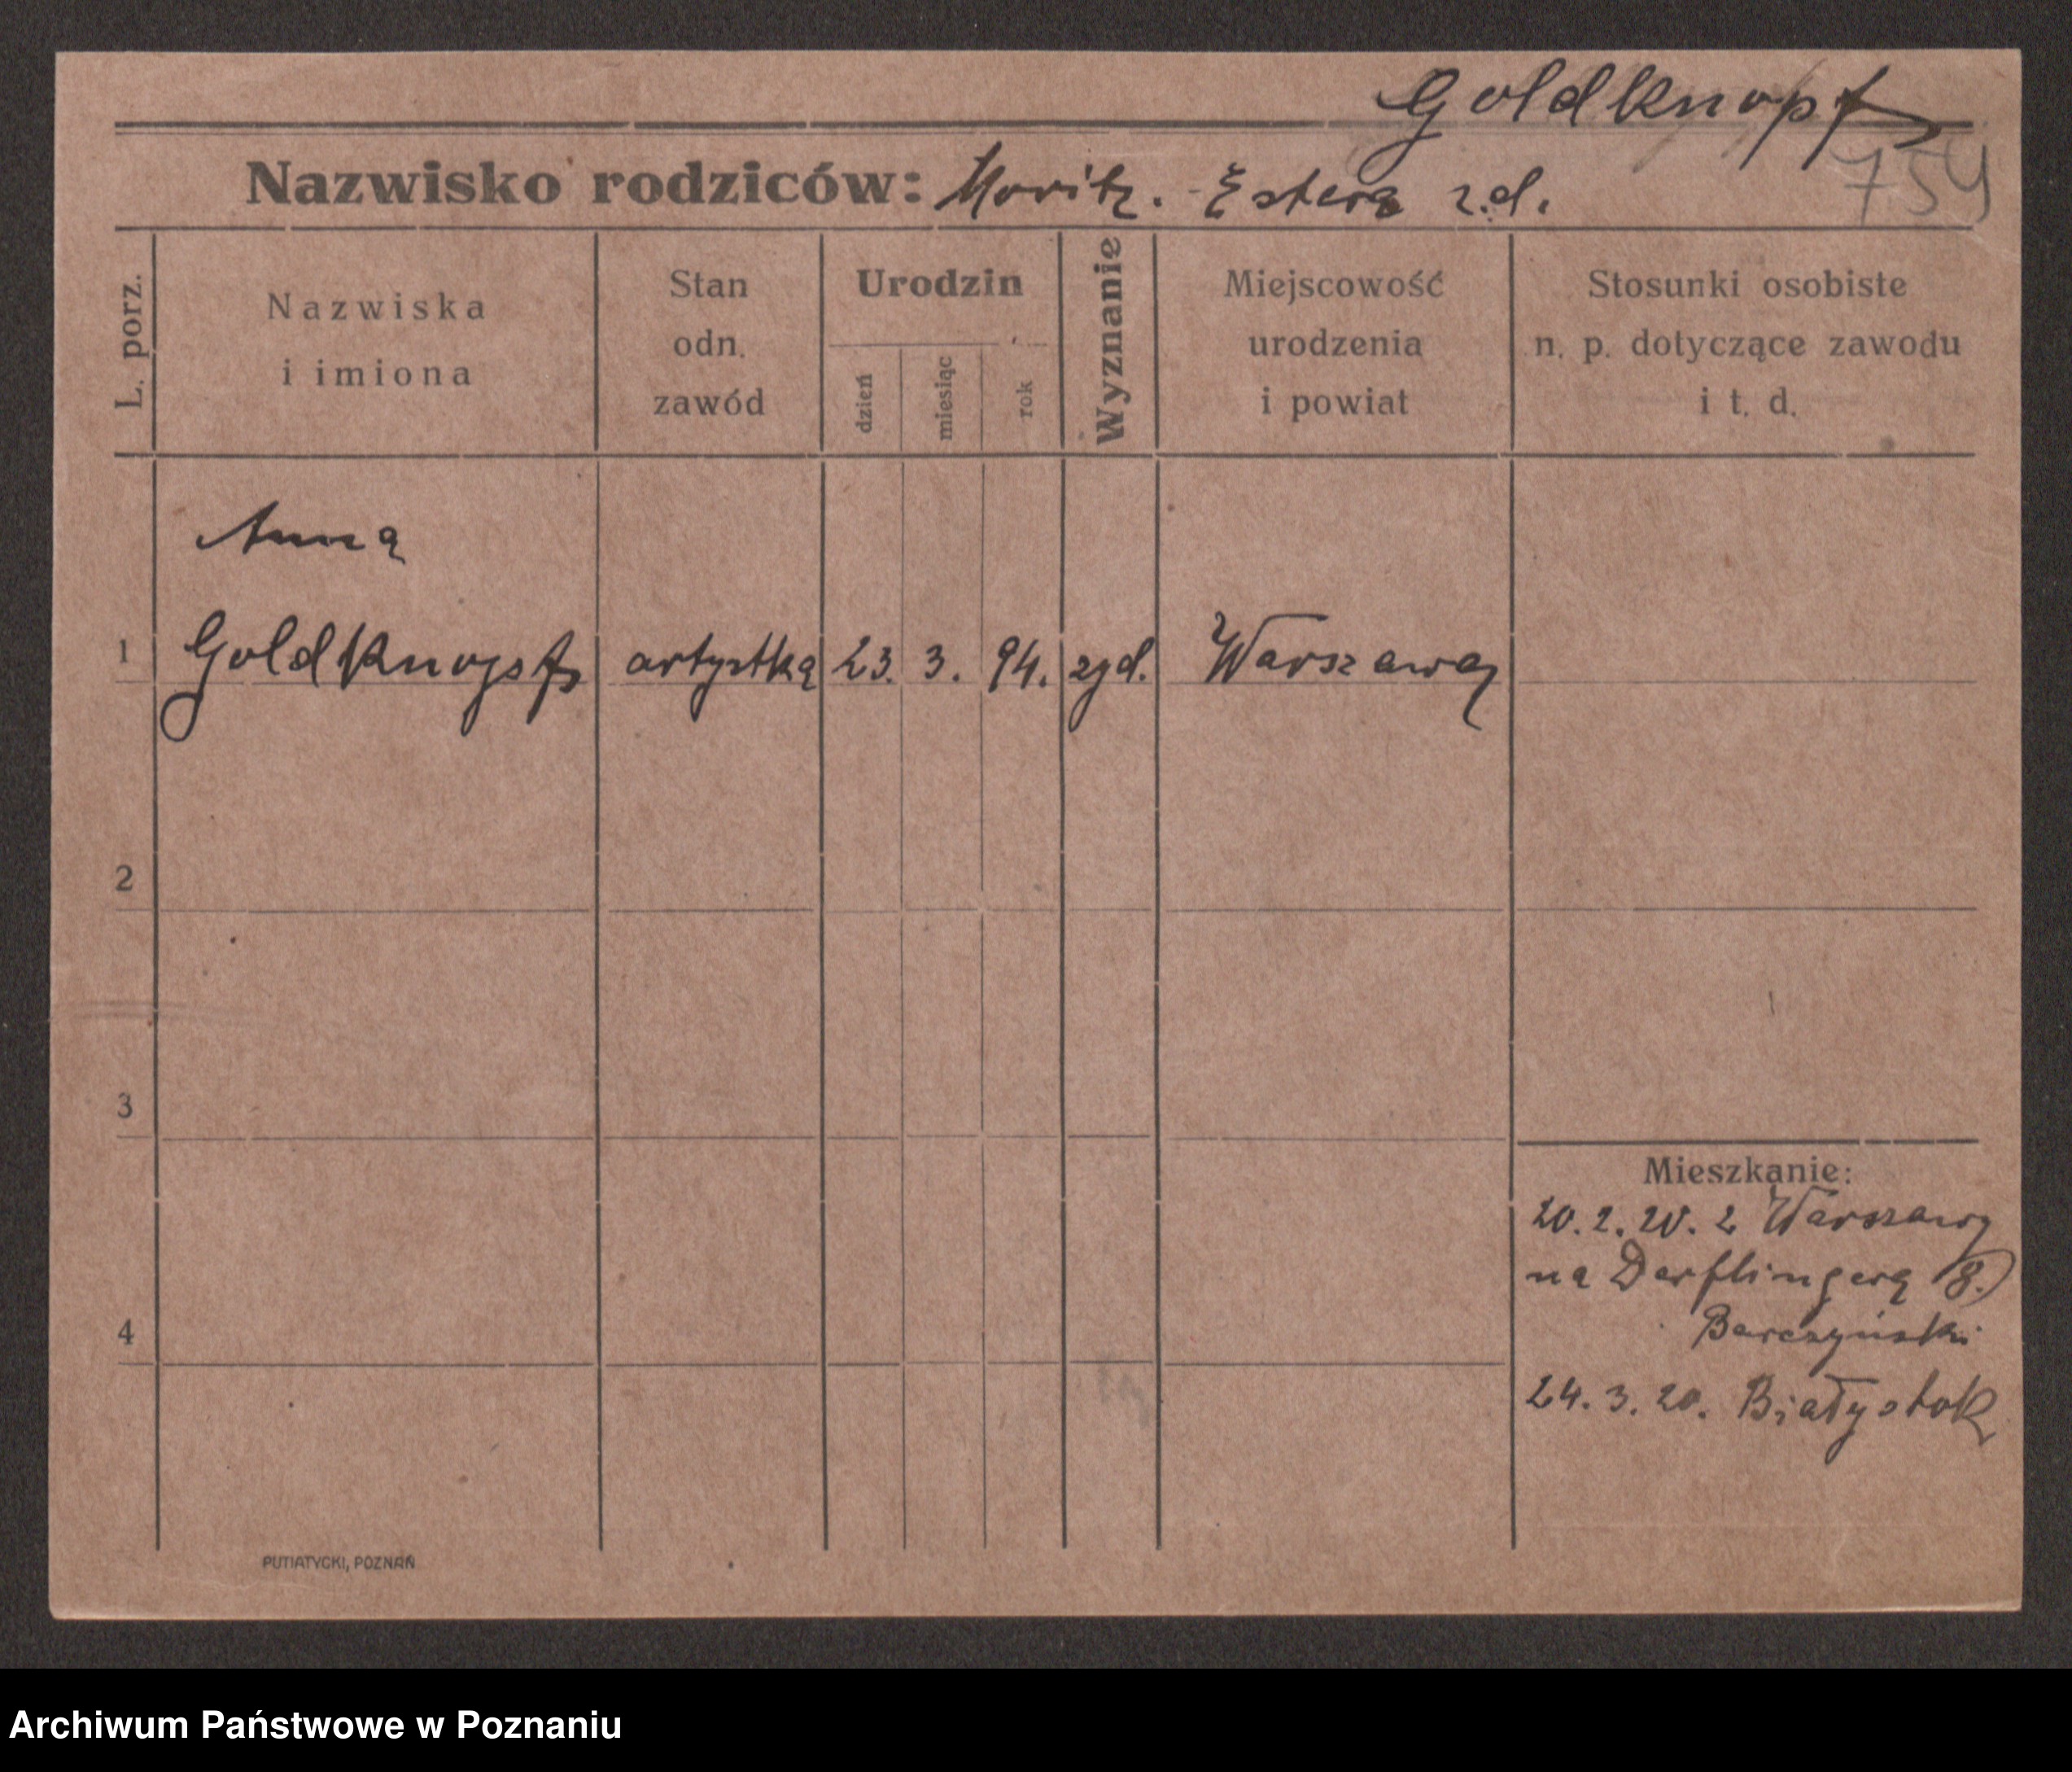 Goldknopf
759
Nazwisko rodziców: Moritz. - Estera z.d.
L. porz.
Nazwiska
i imiona
Stan
odn.
zawód
Urodzin
dzień
miesiąc
rok
Wyznanie
Miejscowość
urodzenia
i powiat
Stosunki osobiste
n. p. dotyczące zawodu
i t. d.
Anna
1 Goldknopf artystka 23. 3. 94. żyd. Warszawa
2
3
4
Mieszkanie:
20.2.20. z Warszawy
na Derflingera 8.)
Barczyński
24.3.20. Białystok
PUTIATYCKI, POZNAŃ
Archiwum Państwowe w Poznaniu